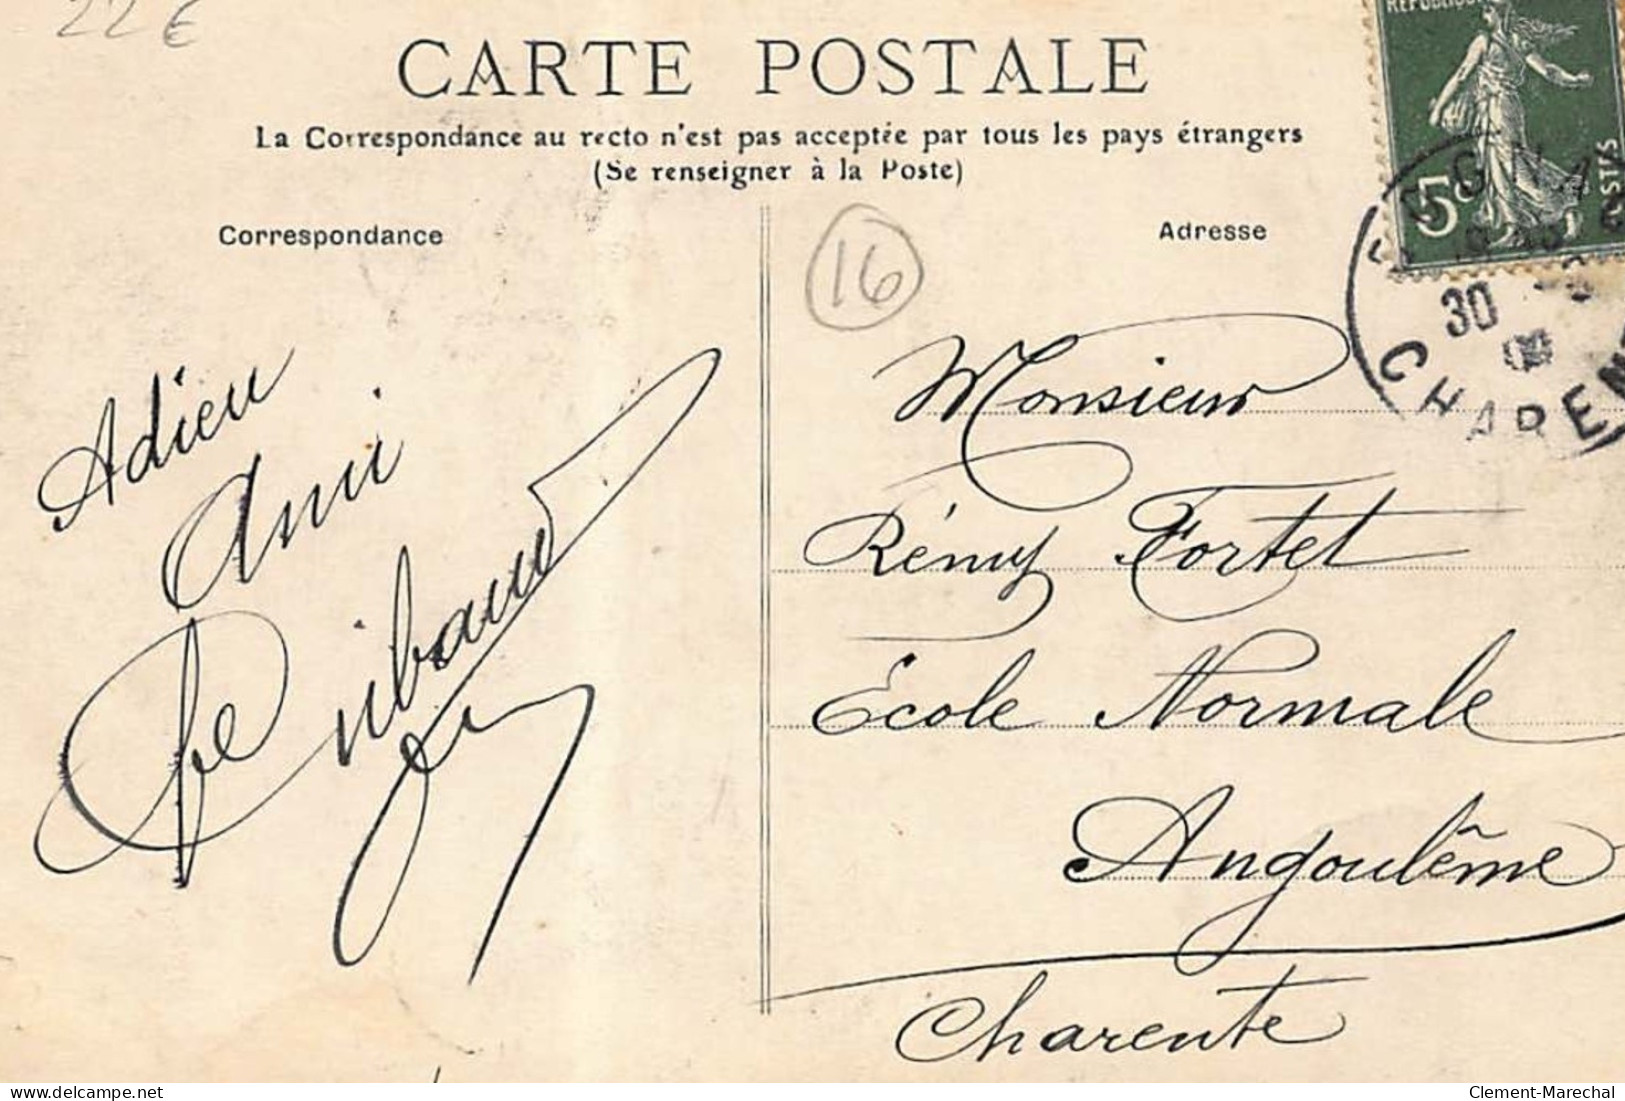 22€
CARTE POSTALE
La Correspondance au recto n'est pas acceptée par tous les pays étrangers
(Se renseigner à la Poste)
Correspondance
Adresse
16
5c
30
09
CHARENT
Adieu
Ami
Monsieur
Rémy Fortet
École Normale
Angoulême
Charente
Clement-Marechal